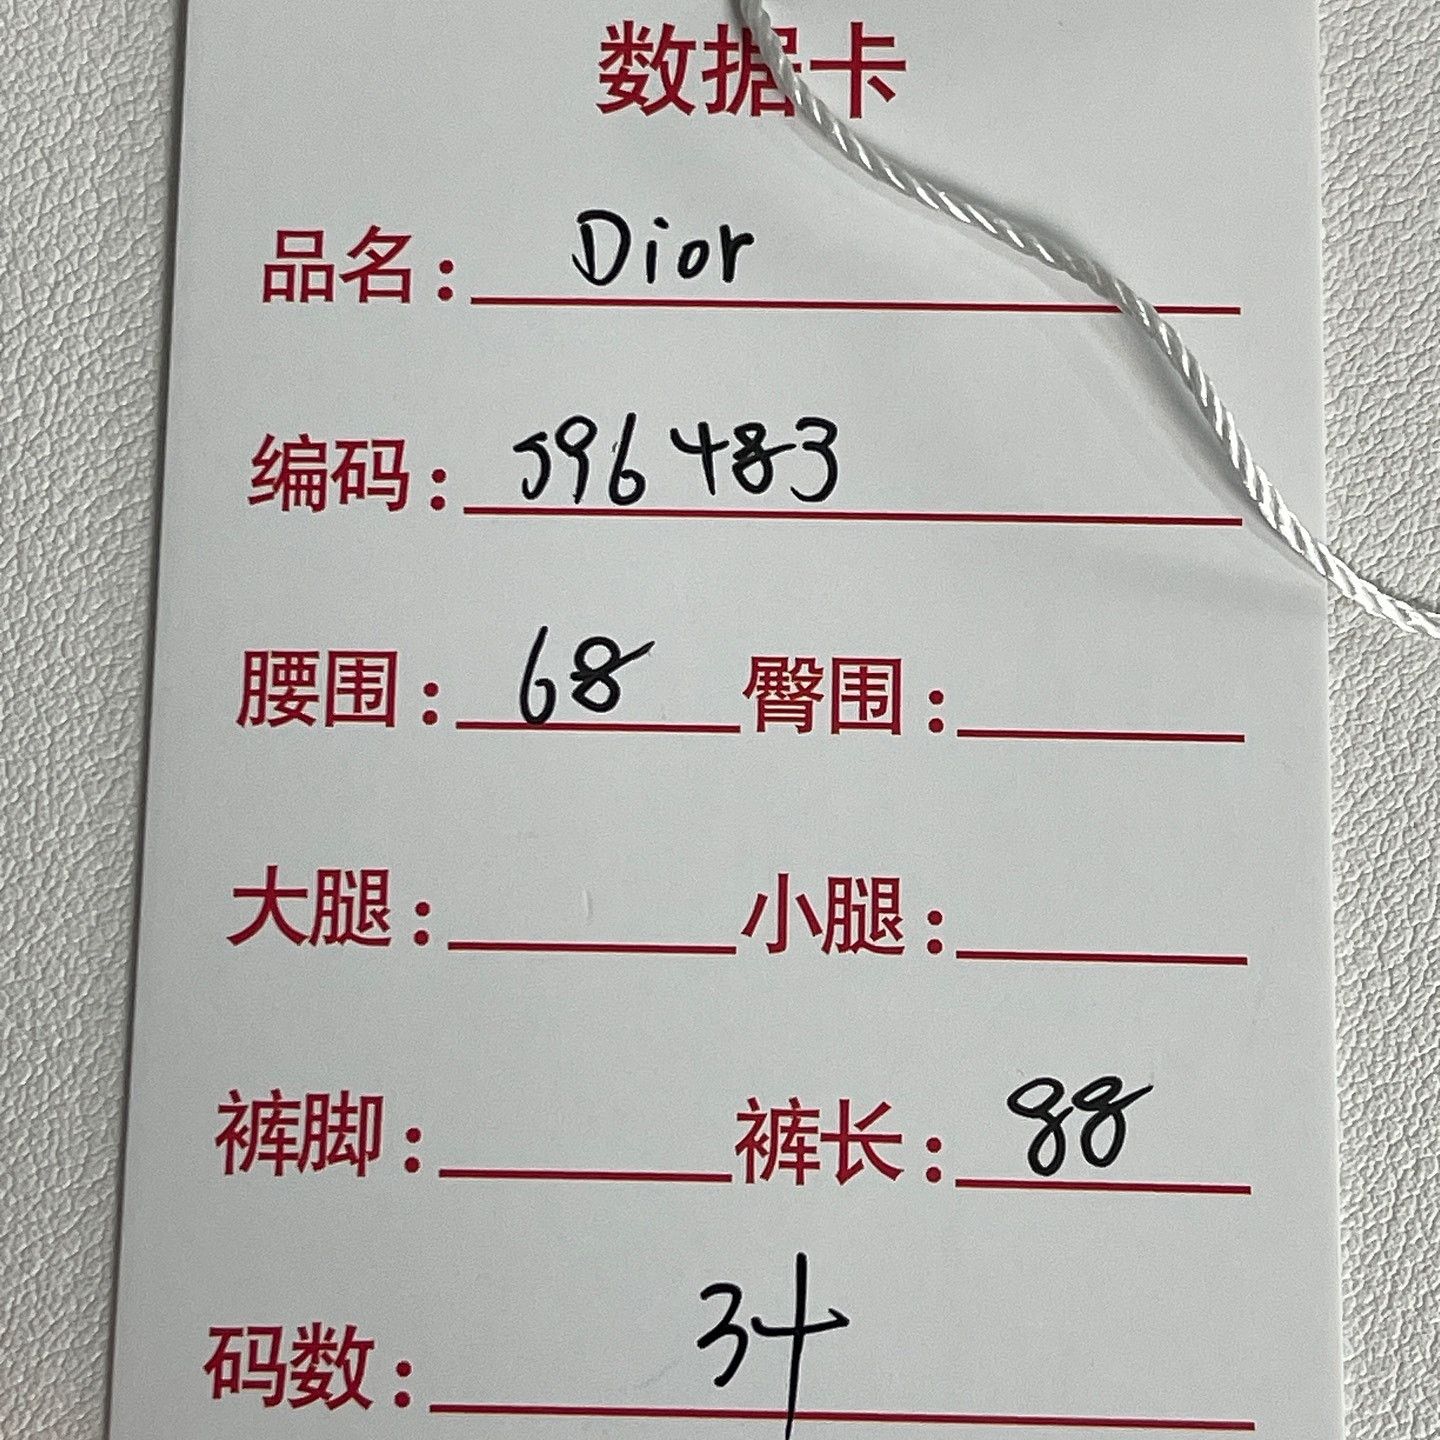 数据卡
品名: Dior
编码: 596483
腰围: 68 臀围:
大腿: 小腿:
裤脚: 裤长: 88
码数: 34